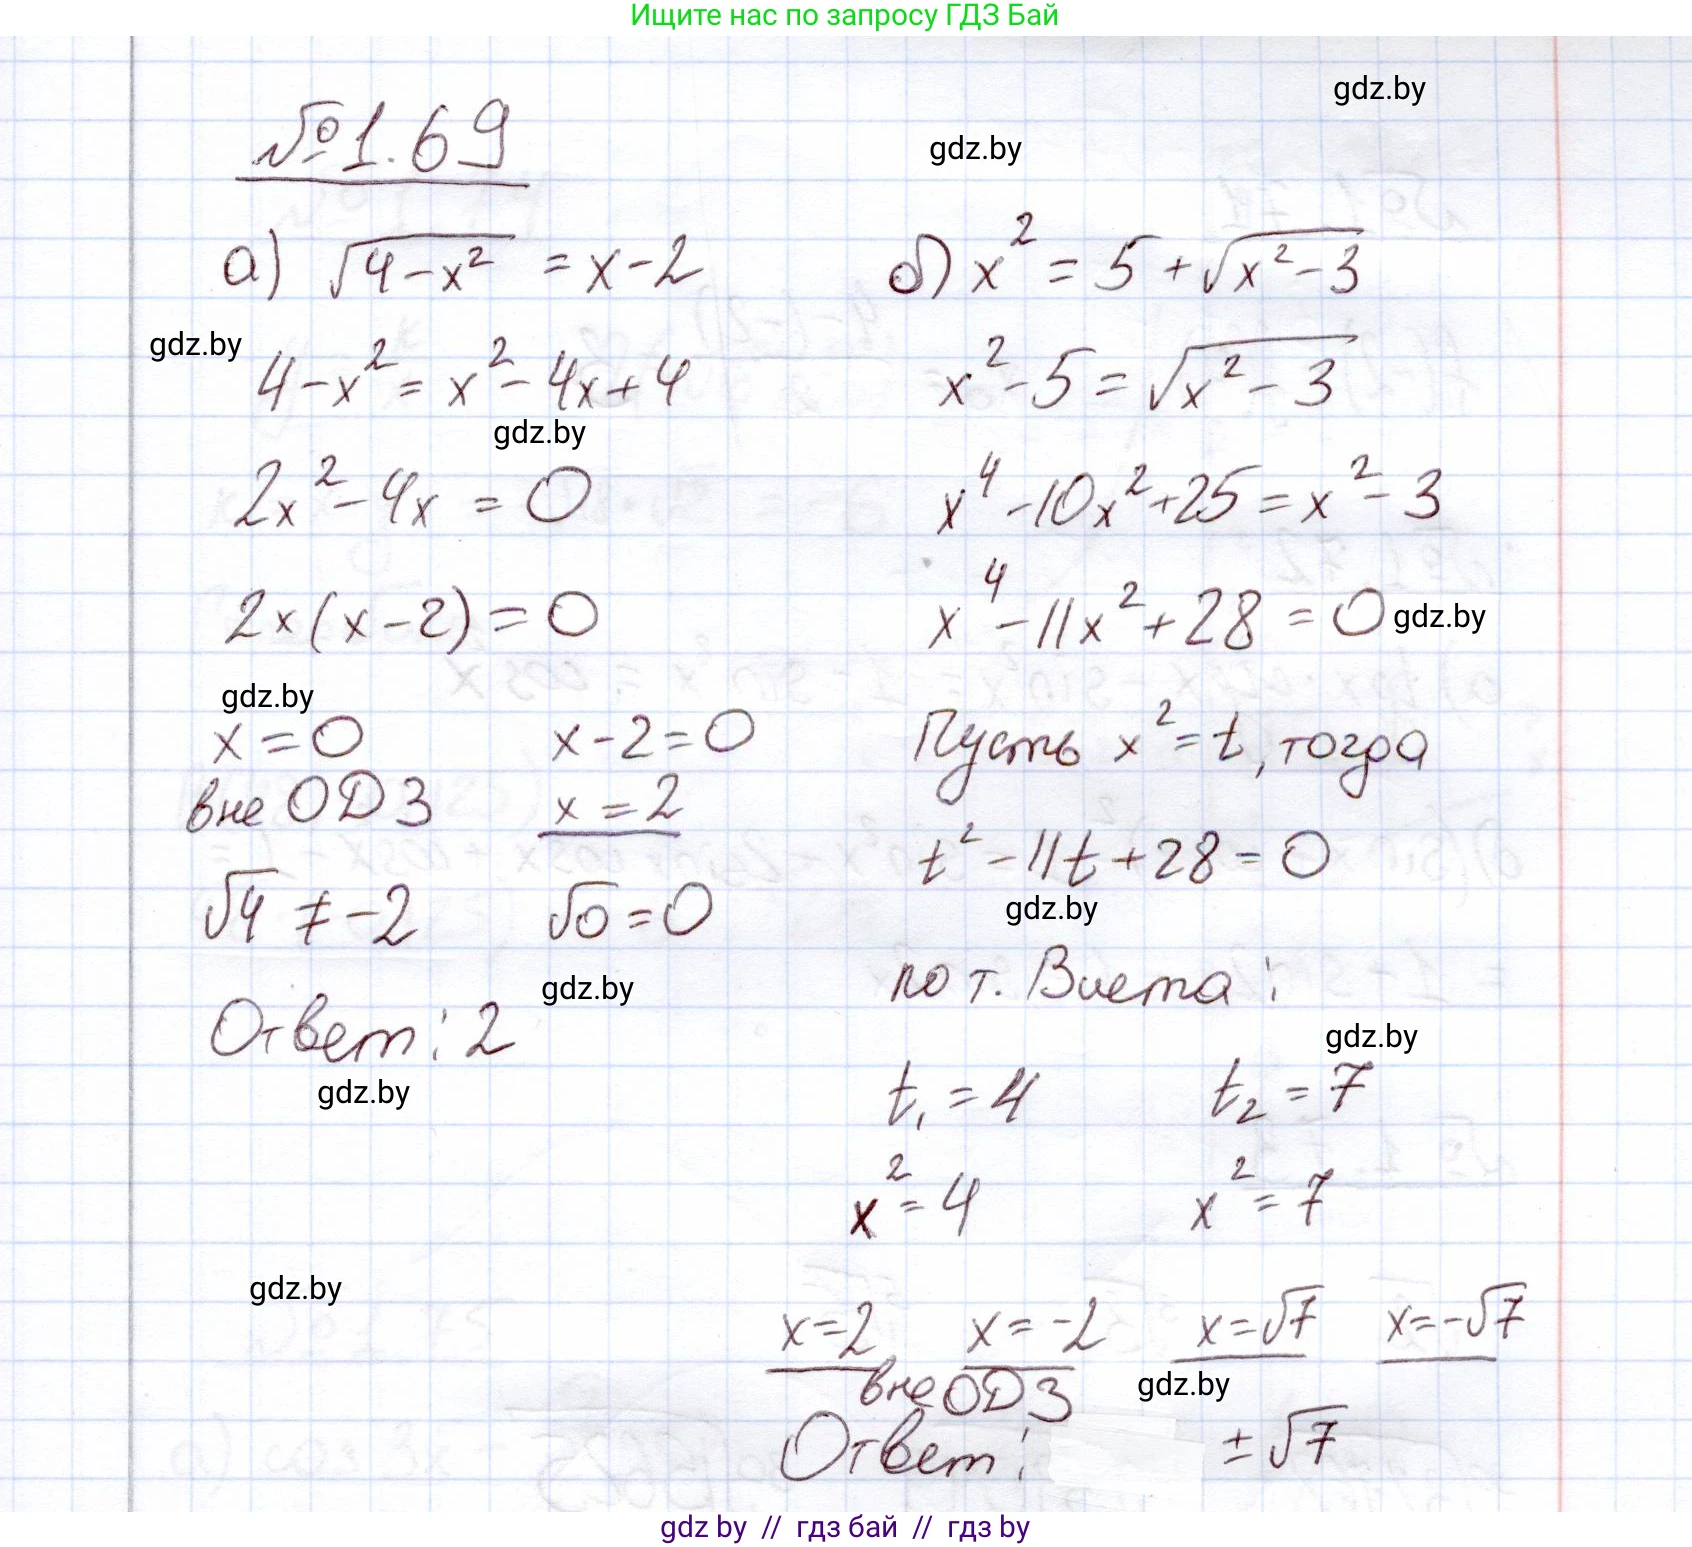 Ищите нас по запросу ГДЗ Бай
gdz.by
gdz.by
№1.69
а) √(4-x²) = x-2
gdz.by
4-x² = x²-4x+4
gdz.by
2x²-4x = 0
2x(x-2) = 0
gdz.by
x=0 x-2=0
вне ОДЗ x=2
√4 ≠ -2 √0=0
gdz.by
Ответ: 2
gdz.by
gdz.by
б) x² = 5+√(x²-3)
x²-5 = √(x²-3)
x⁴-10x²+25 = x²-3
x⁴-11x²+28 = 0
gdz.by
Пусть x²=t, тогда
t²-11t+28=0
gdz.by
по т. Виета:
gdz.by
t₁=4 t₂=7
x²=4 x²=7
x=2 x=-2 x=√7 x=-√7
вне ОДЗ
gdz.by
Ответ: ±√7
gdz by // гдз бай // гдз by